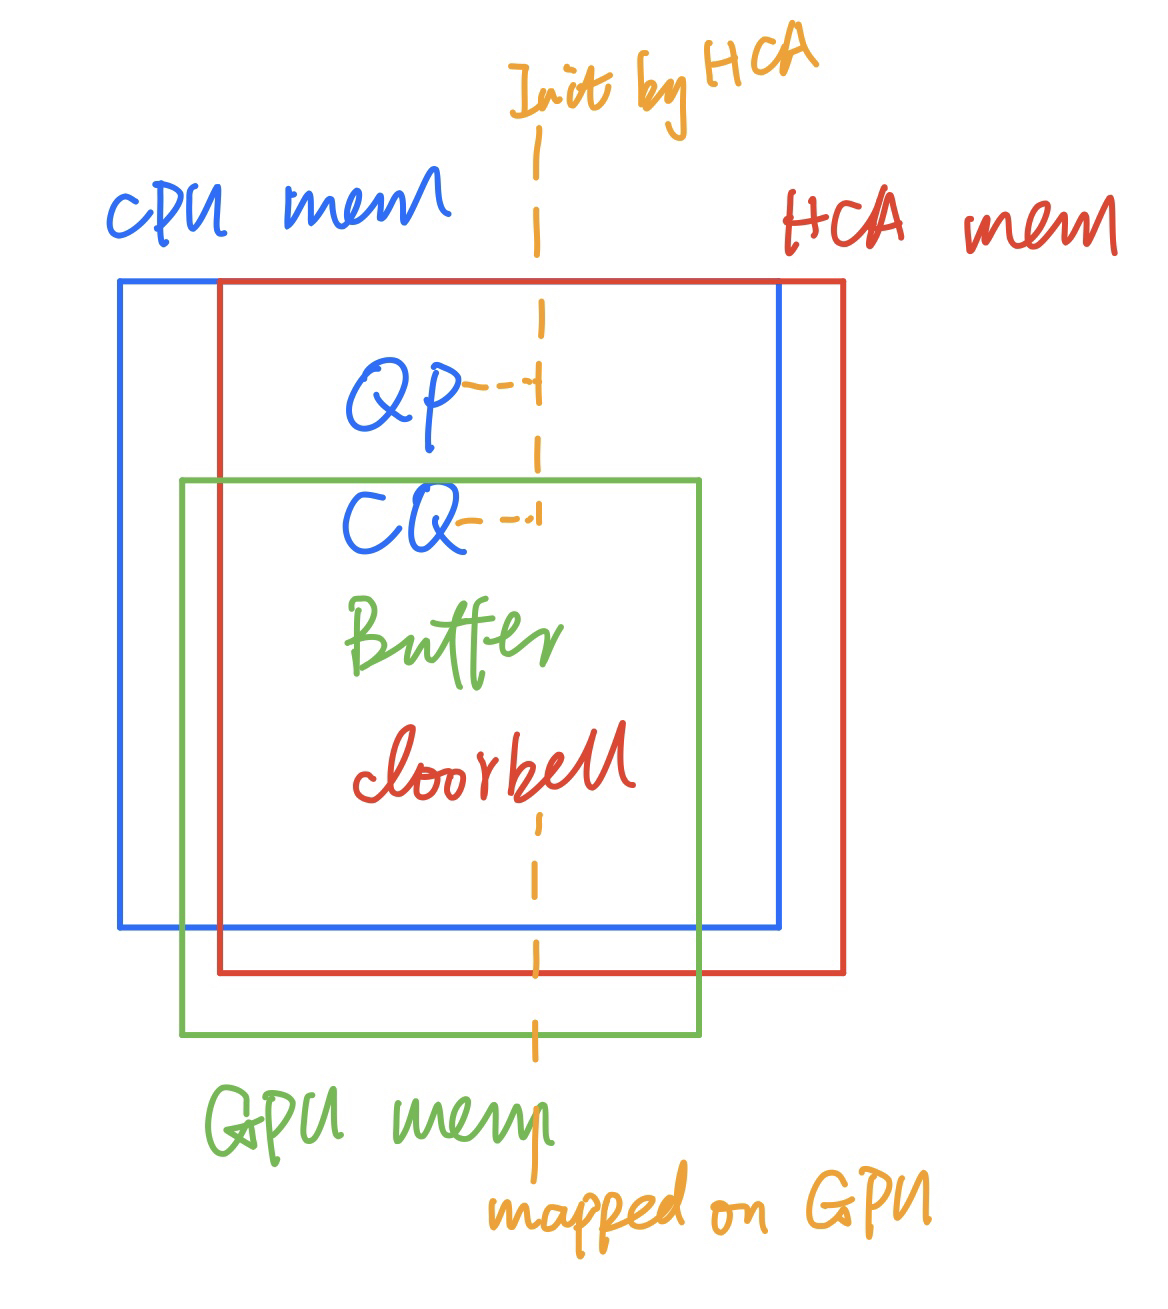 Init by HCA
CPU mem
HCA mem
QP
CQ
Buffer
doorbell
GPU mem
mapped on GPU